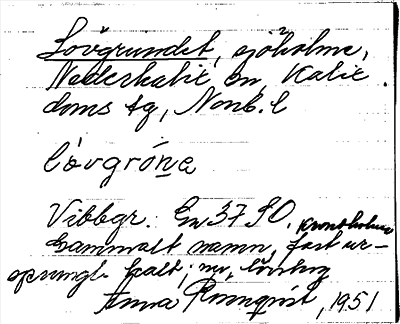 Lövgrundet, sjöholme,
Nederkalix sn, Kalix
doms tg, Norrb. l
lòvgróne
Vibbgr. En 37 SO. Kronholmen
Gammalt namn, fast ur-
sprungl. kalt; nu lövskog
Anna Rönnqvist, 1951